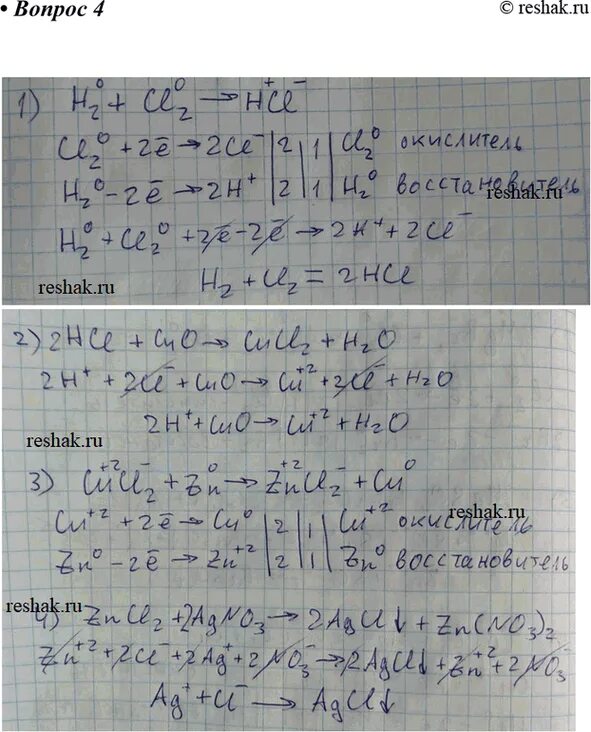 • Вопрос 4
© reshak.ru
1) H₂⁰ + Cl₂⁰ → H⁺Cl⁻
Cl₂⁰ + 2ē → 2Cl⁻ | 2 | 1 | Cl₂⁰ окислитель
H₂⁰ - 2ē → 2H⁺ | 2 | 1 | H₂⁰ восстановитель
reshak.ru
H₂⁰ + Cl₂⁰ + 2ē - 2ē → 2H⁺ + 2Cl⁻
H₂ + Cl₂ = 2HCl
reshak.ru
2) 2HCl + CuO → CuCl₂ + H₂O
2H⁺ + 2Cl⁻ + CuO → Cu⁺² + 2Cl⁻ + H₂O
2H⁺ + CuO → Cu⁺² + H₂O
reshak.ru
3) Cu⁺²Cl₂⁻ + Zn⁰ → Zn⁺²Cl₂⁻ + Cu⁰
Cu⁺² + 2ē → Cu⁰ | 2 | 1 | Cu⁺² окислитель
reshak.ru
Zn⁰ - 2ē → Zn⁺² | 2 | 1 | Zn⁰ восстановитель
reshak.ru
4) ZnCl₂ + 2AgNO₃ → 2AgCl↓ + Zn(NO₃)₂
Zn⁺² + 2Cl⁻ + 2Ag⁺ + 2NO₃⁻ → 2AgCl↓ + Zn⁺² + 2NO₃⁻
Ag⁺ + Cl⁻ → AgCl↓